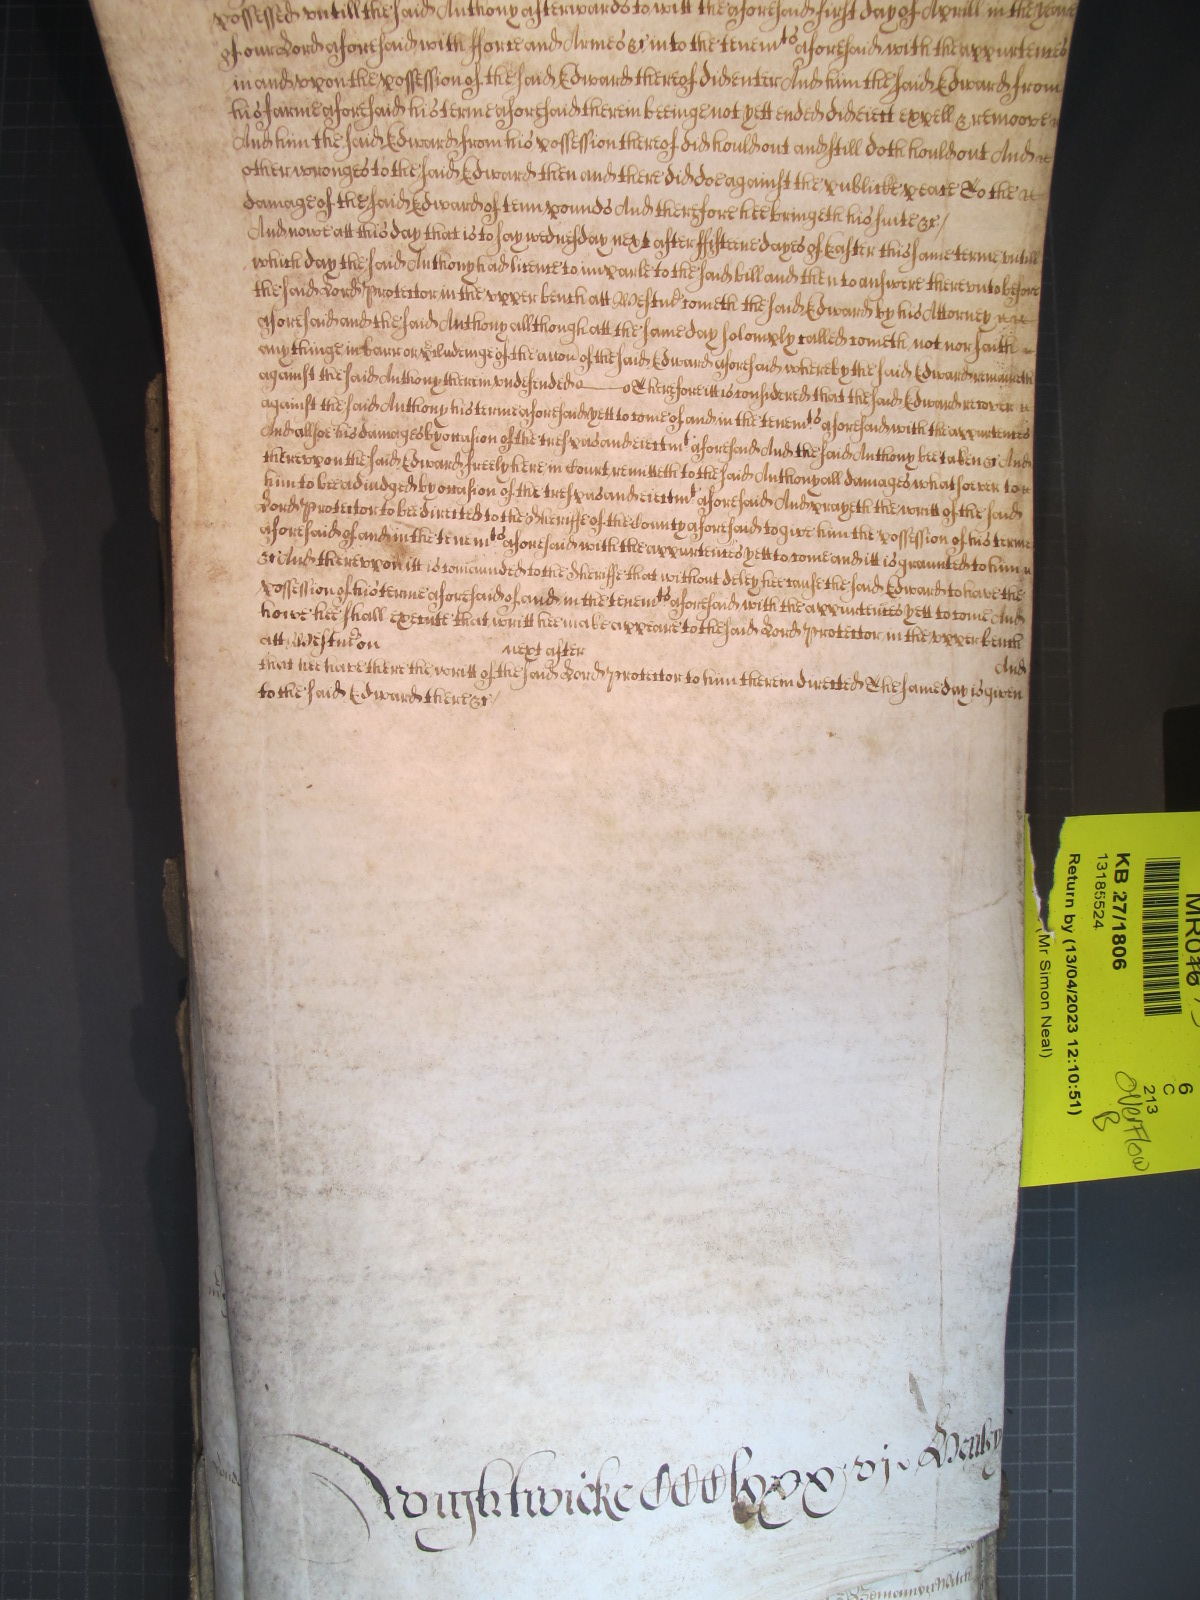 possessed untill the said Anthony afterwards to witt the aforesaid first day of Aprill in the yeare
of our Lord aforesaid with fforce and Armes &c into the tenemts aforesaid with the appurtences
in and uppon the possession of the said Edward thereof did enter And him the said Edward from
his farme aforesaid his terme aforesaid therein beeinge not yett ended did eiect expell & remoove
And him the said Edward from his possession thereof did hould out and still doth hould out And
other wronges to the said Edward then and there did doe against the publicke peace &c To the
damage of the said Edward of tenn pounds And therefore hee bringeth his suite &c/
And nowe att this day that is to say wednesday next after ffifteene dayes of Easter this same terme untill
which day the said Anthony had licence to imparle to the said bill and then to answere thereunto before
the said Lord Protector in the upper bench att Westmr cometh the said Edward by his Attorney
aforesaid and the said Anthony allthough att the same day solemply called cometh not nor saith
any thinge in barr or Precludeinge of the accon of the said Edward aforesaid whereby the said Edward remaineth
against the said Anthony therein undefended Therefore itt is considered that the said Edward recover
against the said Anthony his terme aforesaid yett to come of and in the tenemts aforesaid with the appurtences
And allsoe his damages by occasion of the trespas and eiectmt aforesaid And the said Anthony bee taken &c And
thereuppon the said Edward freely here in Court remitteth to the said Anthony all damages whatsoever to
him to bee adiudged by occasion of the trespas and eiectmt aforesaid And prayeth the writt of the said
Lord Protector to bee directed to the Sheriffe of the County aforesaid to give him the possession of his terme
aforesaid of and in the tenemts aforesaid with the appurtences yett to come and itt is graunted to him
&c And thereuppon itt is comaunded to the Sheriffe that without deley hee cause the said Edward to have the
possession of his terme aforesaid of and in the tenemts aforesaid with the appurtences yett to come And
howe hee shall execute that writt hee make appeare to the said Lord Protector in the upper bench
att Westmr on next after And
that hee have there the writt of the said Lord Protector to him therein directed The same day is given
to the said Edward there &c/
Wightwicke CCClxxxvj Henley
MR0
KB 27/1806
13185524
Return by (13/04/2023 12:10:51)
(Mr Simon Neal)
6
C
213
Overflow
B